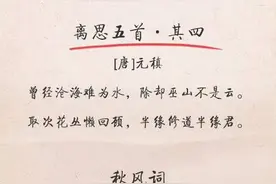 离思五首·其四
[唐]元稹
曾经沧海难为水，除却巫山不是云。
取次花丛懒回顾，半缘修道半缘君。
秋风词